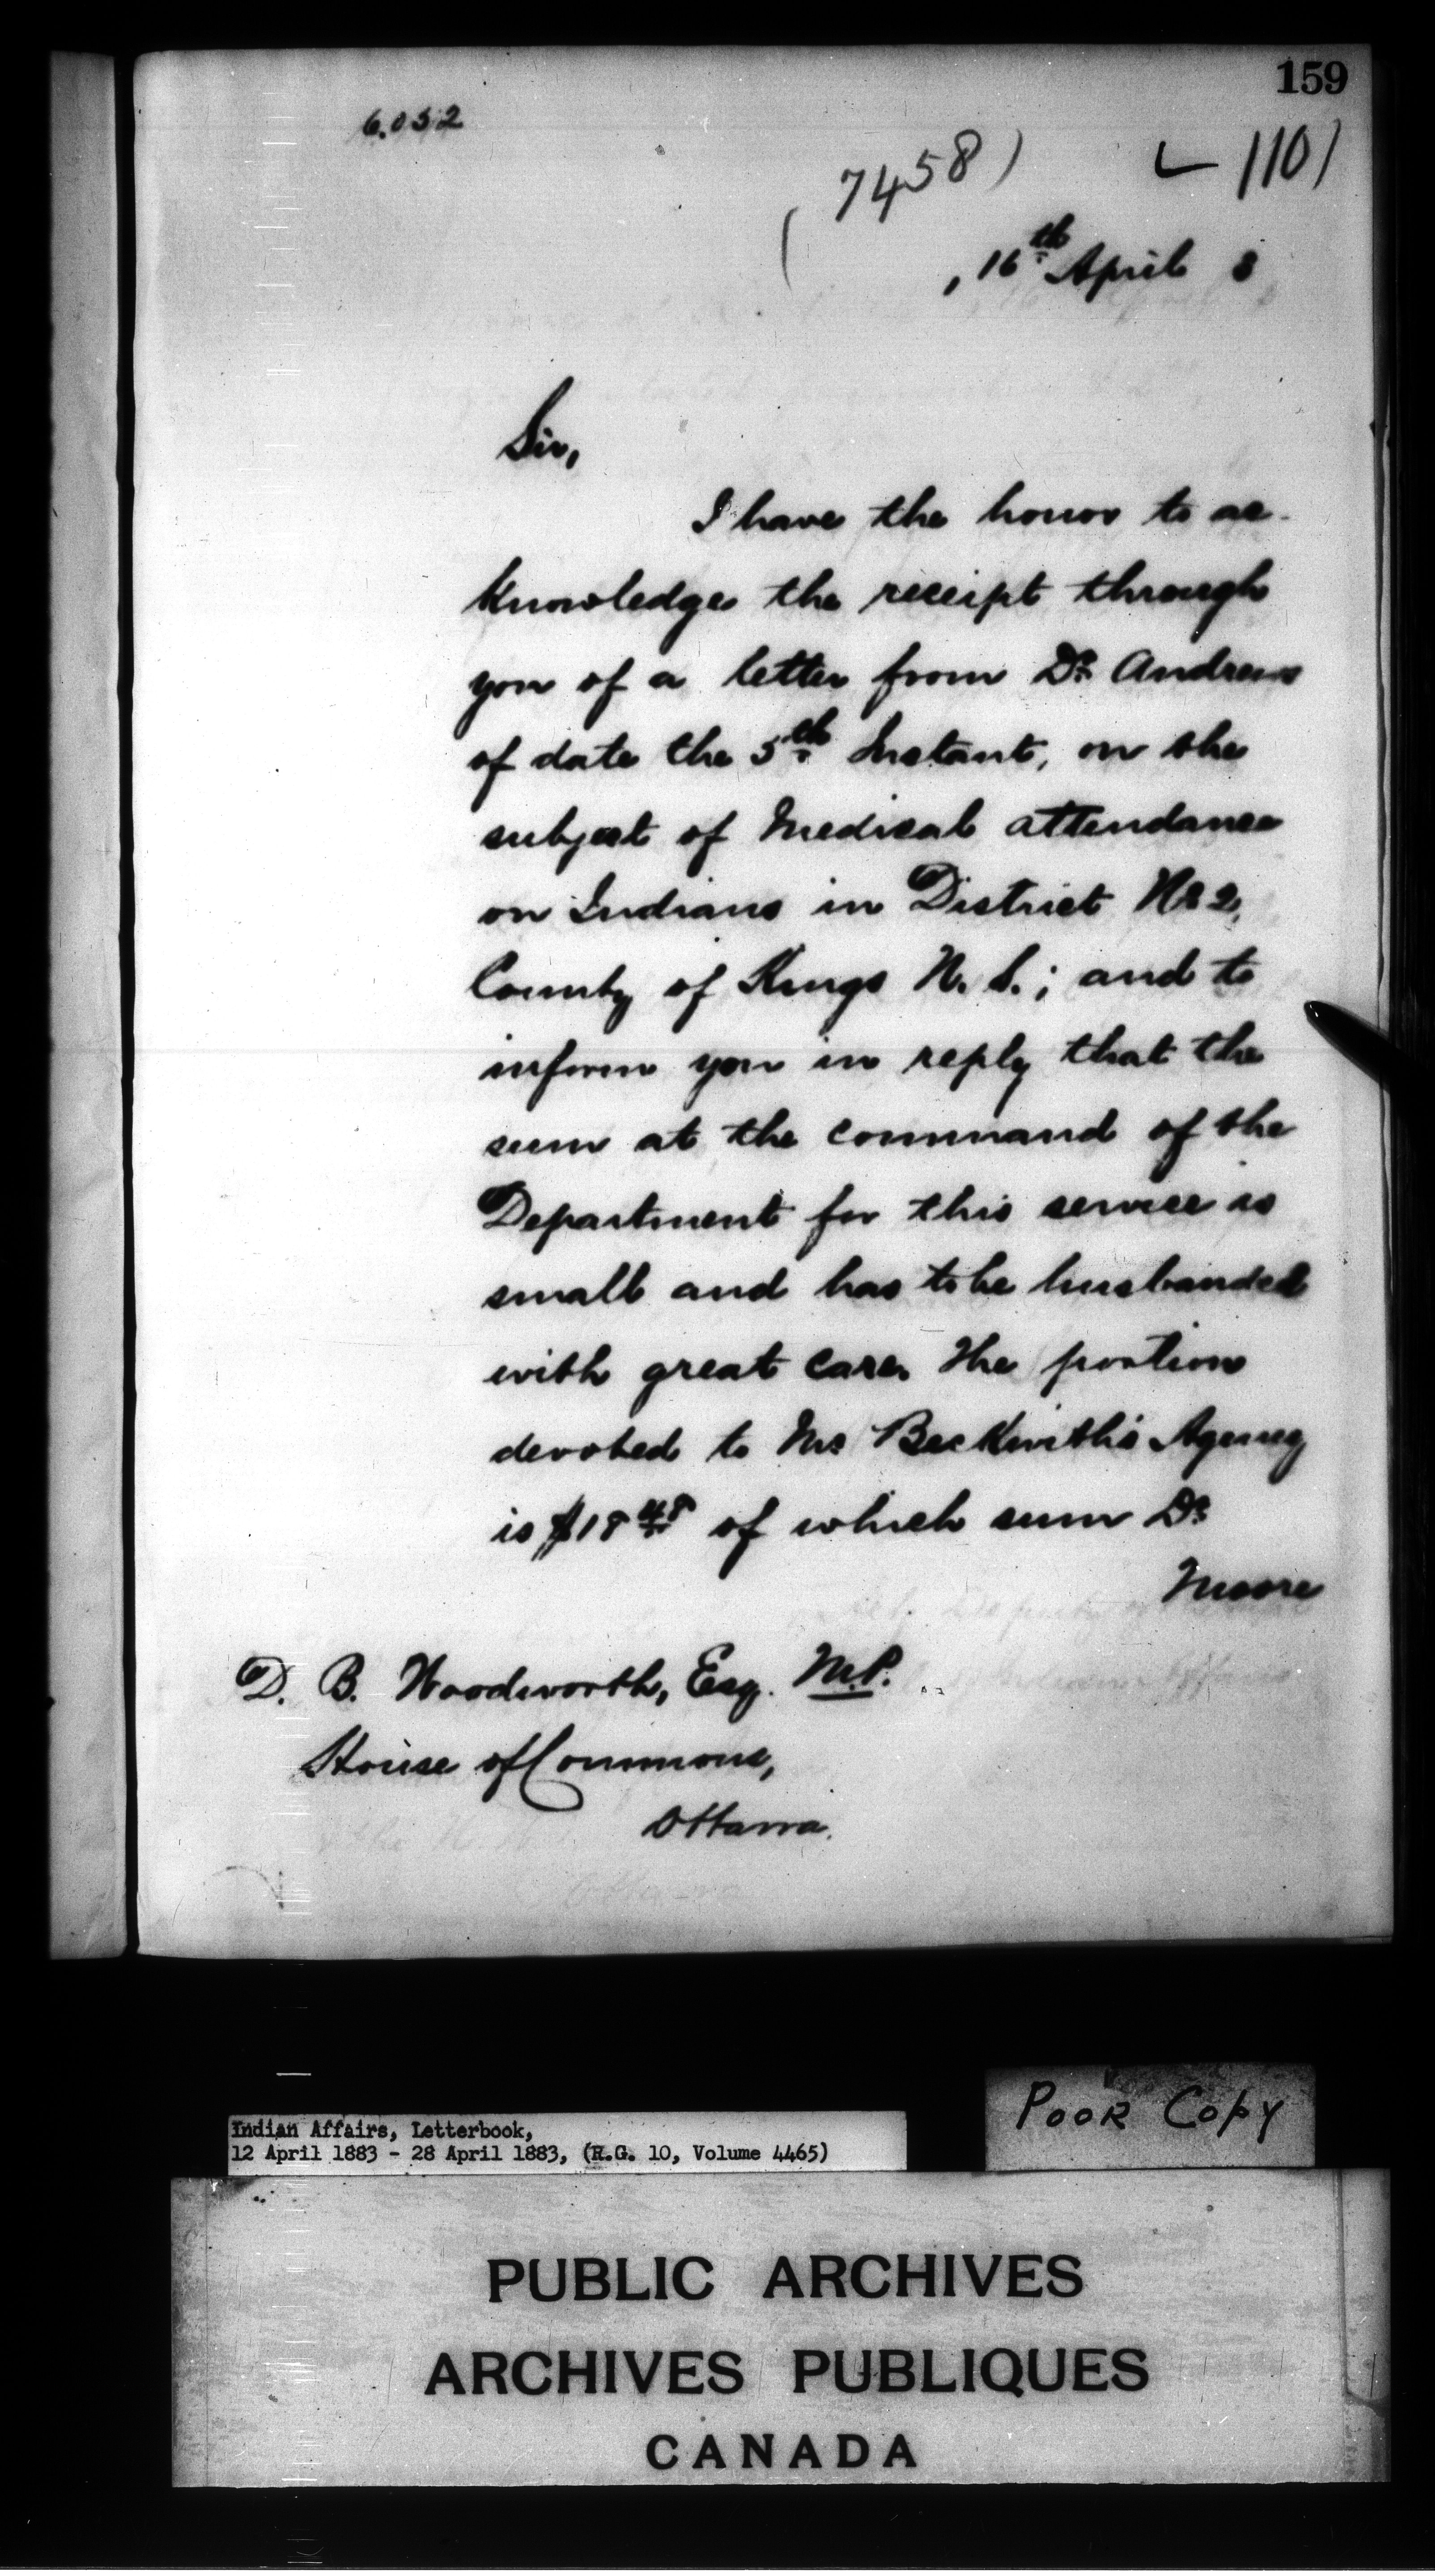 159
6.032
(7458)
110)
, 16th April 3
Sir,
I have the honor to ac-
knowledge the receipt through
you of a letter from Dr. Andrews
of date the 5th Instant, on the
subject of Medical attendance
on Indians in District No 2,
County of Kings N. S.; and to
inform you in reply that the
sum at the command of the
Department for this service is
small and has to be husbanded
with great care. The portion
devoted to Mr Beckwith's Agency
is $18 48 of which sum Dr
Moore
D. B. Woodworth, Esq. M.P.
House of Commons,
Ottawa.
Poor Copy
Indian Affairs, Letterbook,
12 April 1883 - 28 April 1883, (R.G. 10, Volume 4465)
PUBLIC ARCHIVES
ARCHIVES PUBLIQUES
CANADA